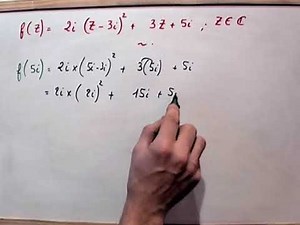 f(z) = 2i (z-3i)² + 3z + 5i ; z∈ℂ
~.
f(5i) = 2i×(5i-3i)² + 3(5i) + 5i
= 2i×(2i)² + 15i + 5